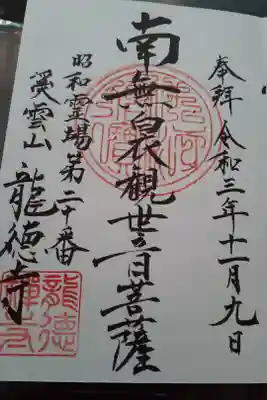 奉拝 令和三年十一月九日
南無白衣觀世音菩薩
昭和霊場第二十番
溪雲山 龍徳寺
龍徳